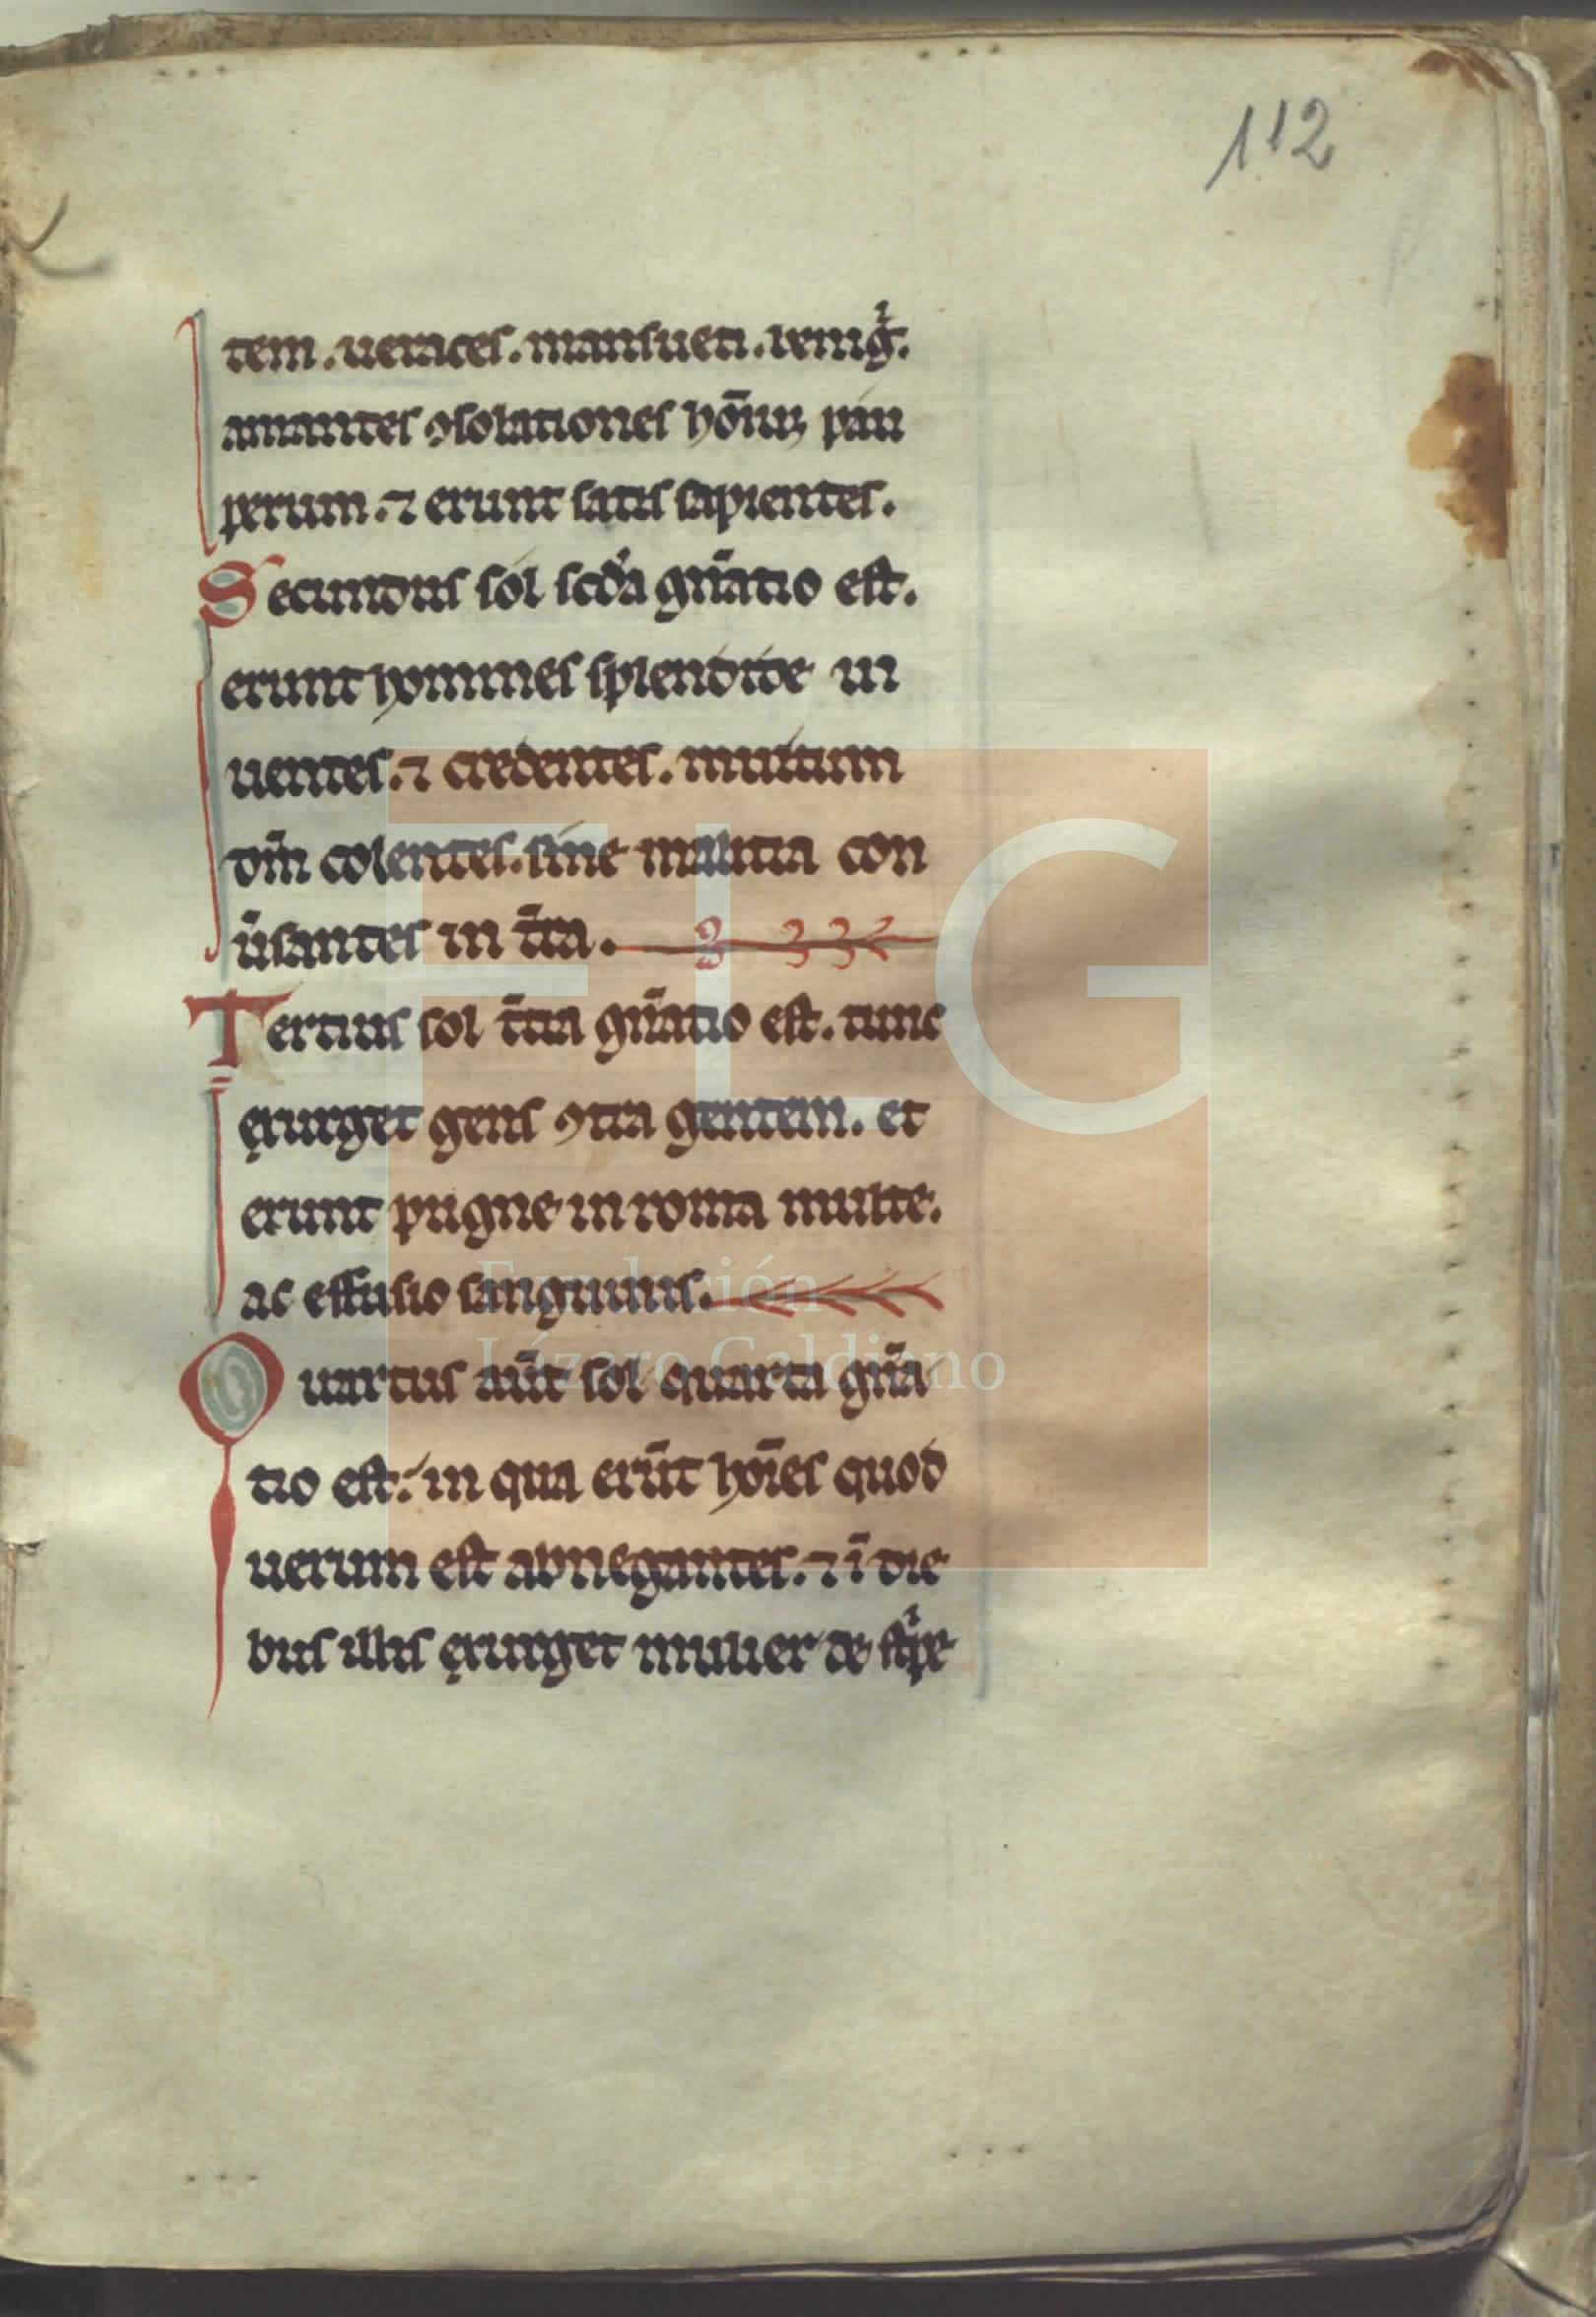 112
tem. ueraces. mansueti. benigͥ.
amantes ꝯsolationes hōnuȝ pau
perum. ⁊ erunt satis sapientes.
Secundus sol scd'a gn̄atio est.
erunt homines splendide ui
uentes. ⁊ credentes. multum
dm̄ colentes. sine malitia con
ūsantes in t̄ra.
Tertius sol t̄cia gn̄atio est. tunc
exurget gens ꝯtra gentem. et
erunt pugne in roma multe.
ac effusio sanguinis.
Quartus aūt sol quarta gn̄a
tio est. in qua erūt hoīes quod
uerum est abnegantes. ⁊ ī die
bus illis exurget mulier de stͥpe
FLG
Fundación
Lázaro Galdiano